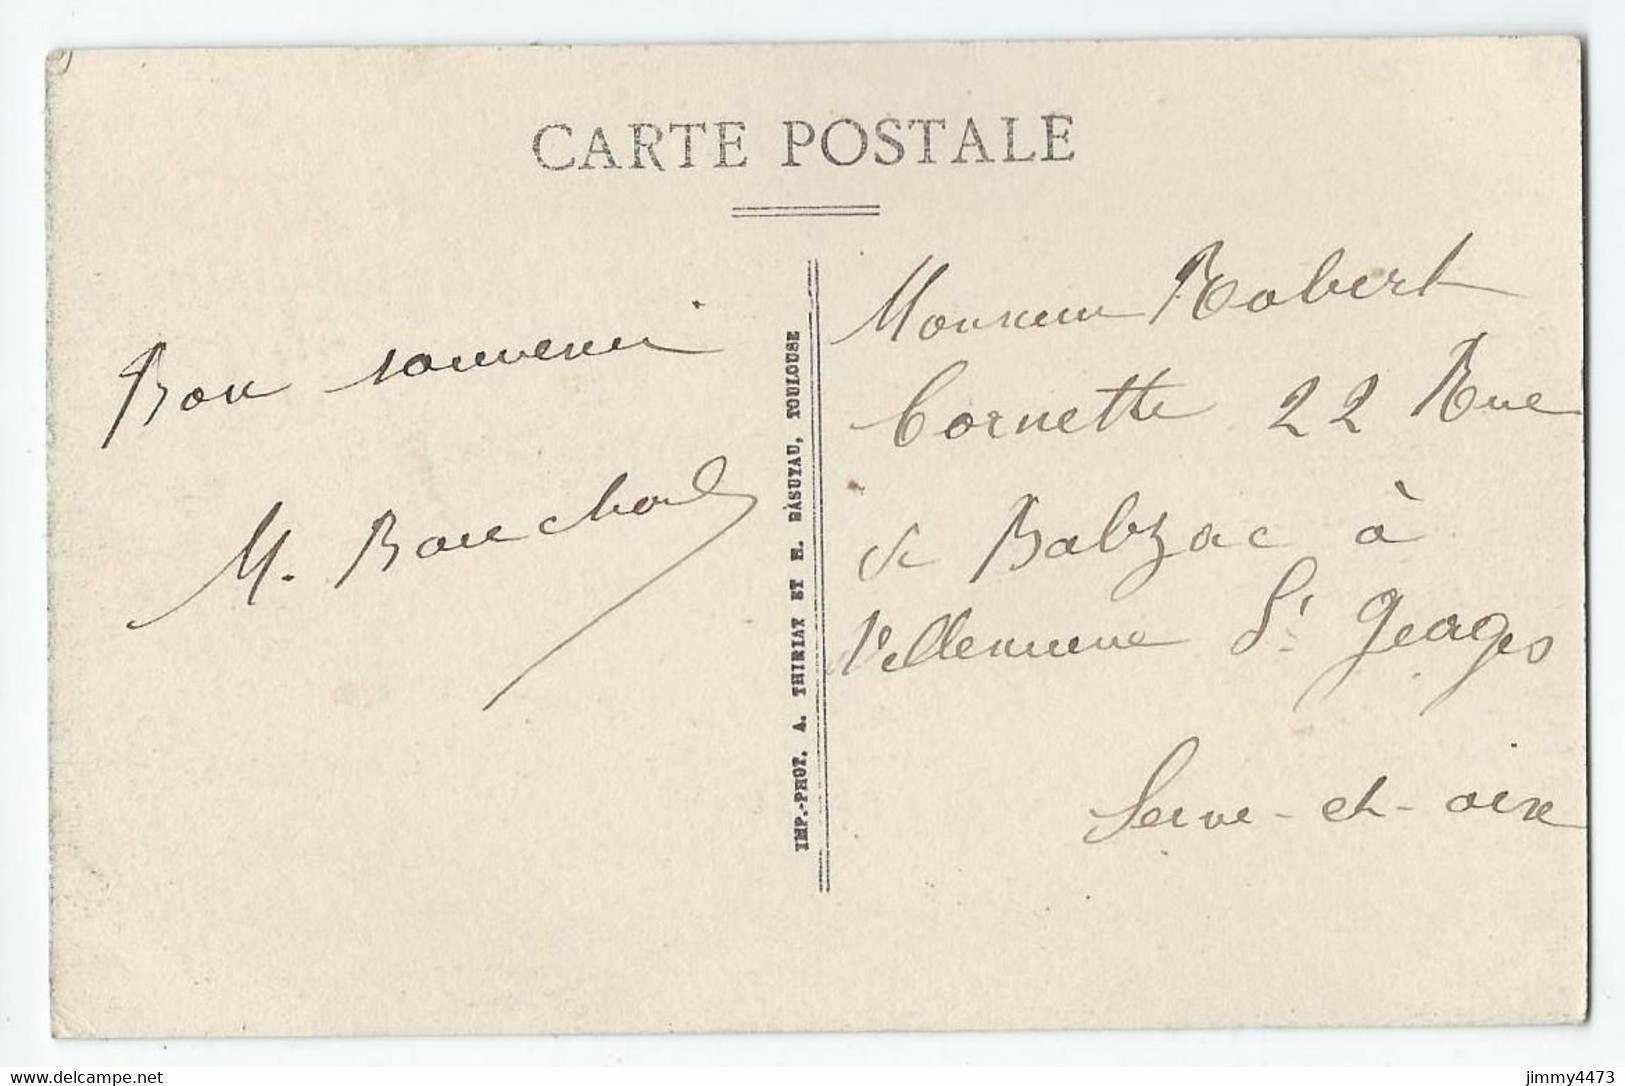 CARTE POSTALE
Bon souvenir
M. Bouchard
IMP.-PHOT. A. THIRIAT ET H. BASUYAU, TOULOUSE
Monsieur Robert
Cornette 22 Rue
de Balzac à
Villeneuve St Georges
Seine-et-oise
delcampe.net
jimmy4473